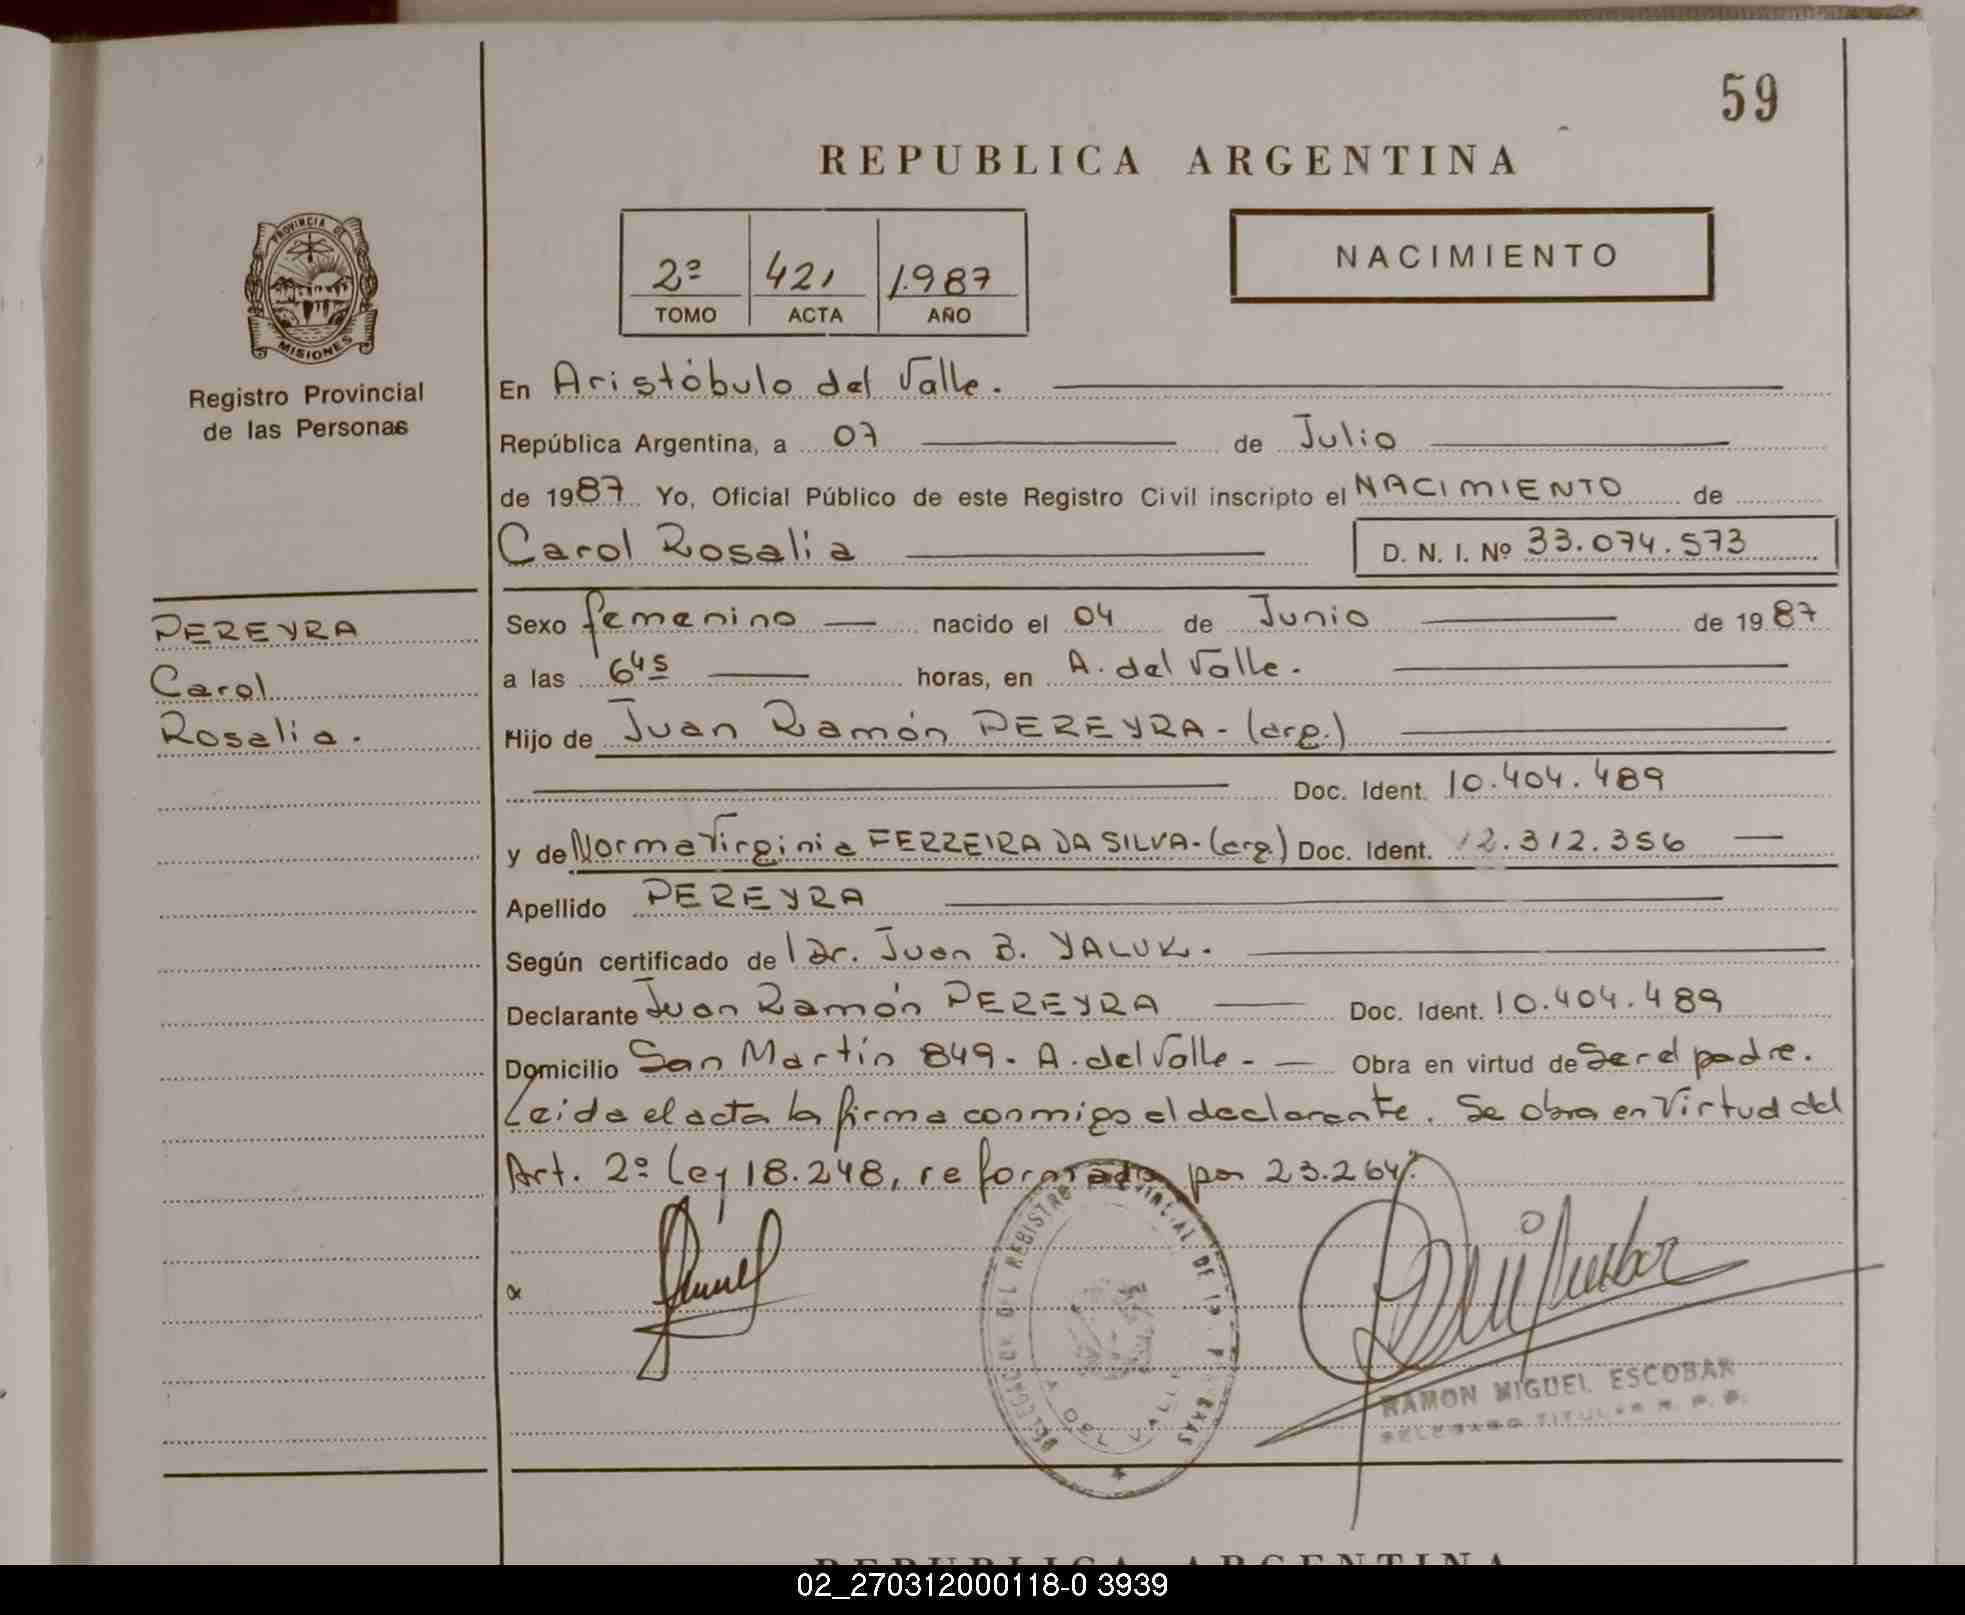 59
REPUBLICA ARGENTINA
PROVINCIA DE
MISIONES
Registro Provincial
de las Personas
2º 421 1.987
TOMO ACTA AÑO
NACIMIENTO
En Aristóbulo del Valle.
República Argentina, a 07 de Julio
de 1987 Yo, Oficial Público de este Registro Civil inscripto el NACIMIENTO de
Carol Rosalia D. N. I. Nº 33.074.573
PEREYRA
Carol
Rosalia.
Sexo femenino nacido el 04 de Junio de 1987
a las 6⁴⁵ horas, en A. del Valle.
Hijo de Juan Ramón PEREYRA - (arg.)
Doc. Ident. 10.404.489
y de Norma Virginia FERREIRA DA SILVA - (arg.) Doc. Ident. 12.312.356
Apellido PEREYRA
Según certificado de l Dr. Juan B. YALUK.
Declarante Juan Ramón PEREYRA Doc. Ident. 10.404.489
Domicilio San Martín 849 - A. del Valle - Obra en virtud de Ser el padre.
Leida el acta la firma conmigo el declarante. Se obra en Virtud del
Art. 2º Ley 18.248, reformado por 23.264.
DELEGACION DEL REGISTRO PROVINCIAL DE LAS PERSONAS
A. DEL VALLE
RAMON MIGUEL ESCOBAR
DELEGADO TITULAR R. P. P.
REPUBLICA ARGENTINA
02_270312000118-0 3939